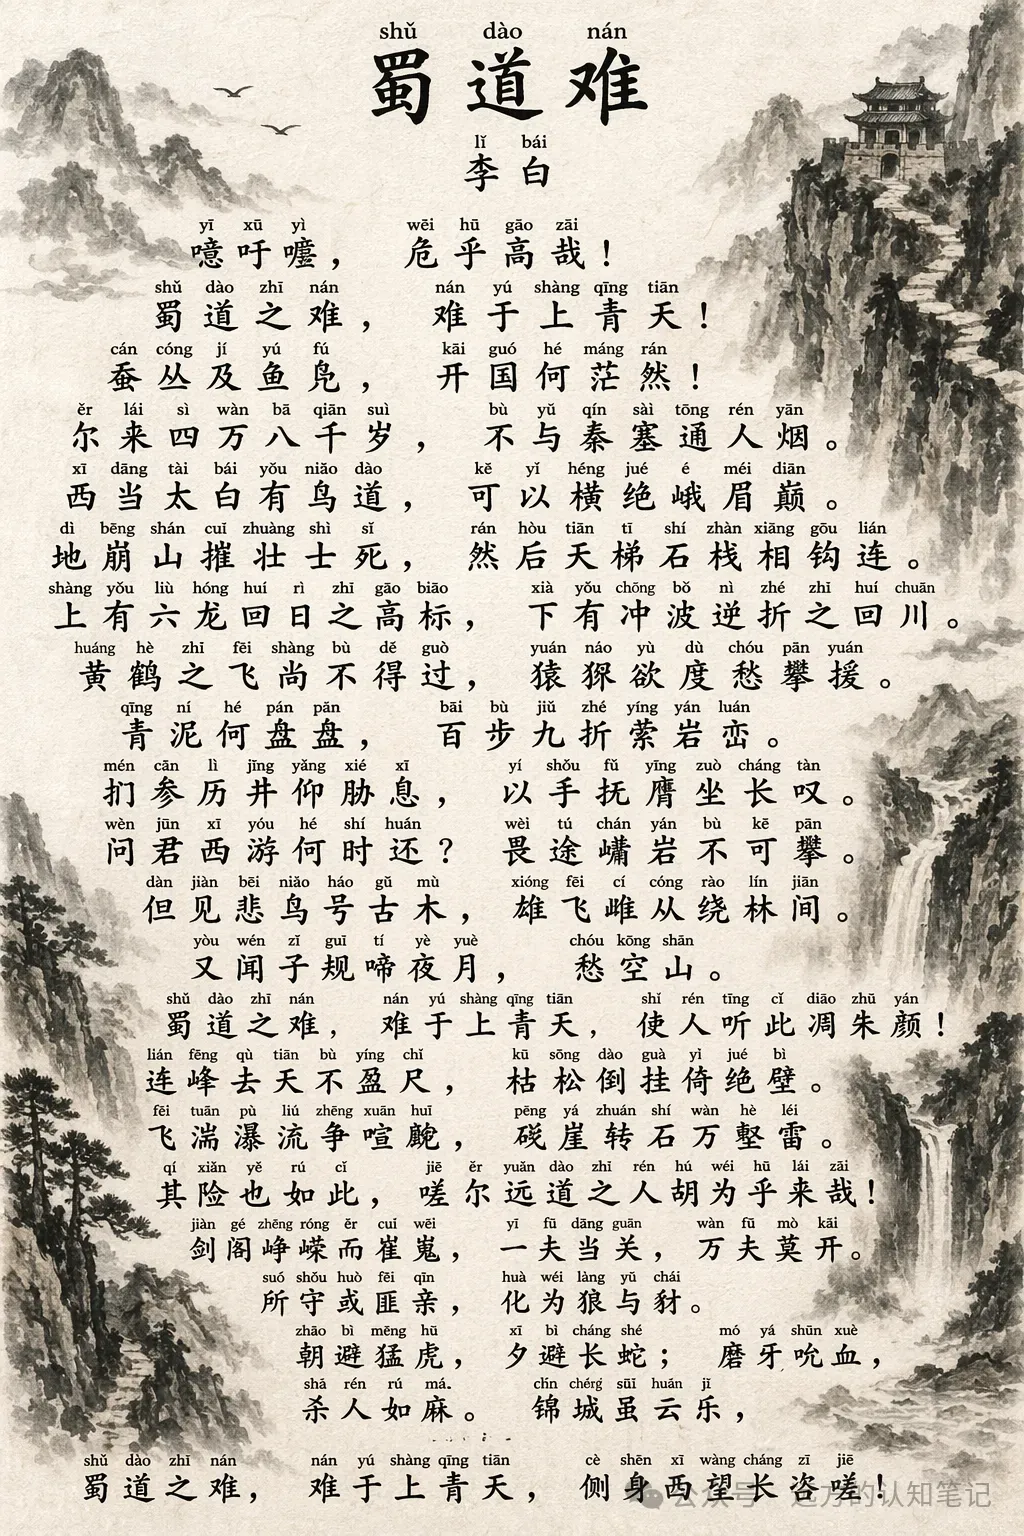 shǔ dào nán
蜀道难
lǐ bái
李白
yī xū yì wēi hū gāo zāi
噫吁嚱， 危乎高哉！
shǔ dào zhī nán nán yú shàng qīng tiān
蜀道之难， 难于上青天！
cán cóng jí yú fú kāi guó hé máng rán
蚕丛及鱼凫， 开国何茫然！
ěr lái sì wàn bā qiān suì bù yǔ qín sài tōng rén yān
尔来四万八千岁， 不与秦塞通人烟。
xī dāng tài bái yǒu niǎo dào kě yǐ héng jué é méi diān
西当太白有鸟道， 可以横绝峨眉巅。
dì bēng shán cuī zhuàng shì sǐ rán hòu tiān tī shí zhàn xiāng gōu lián
地崩山摧壮士死， 然后天梯石栈相钩连。
shàng yǒu liù hóng huí rì zhī gāo biāo xià yǒu chōng bǒ nì zhé zhī huí chuān
上有六龙回日之高标， 下有冲波逆折之回川。
huáng hè zhī fēi shàng bù dě guò yuán náo yù dù chóu pān yuán
黄鹤之飞尚不得过， 猿猱欲度愁攀援。
qīng ní hé pán pǎn bāi bù jiǔ zhé yíng yán luán
青泥何盘盘， 百步九折萦岩峦。
mén cān lì jīng yǎng xié xī yí shǒu fǔ yīng zuò cháng tàn
扪参历井仰胁息， 以手抚膺坐长叹。
wèn jūn xī yóu hé shí huán wèi tú chán yán bù kě pān
问君西游何时还？ 畏途巉岩不可攀。
dàn jiàn bēi niǎo háo gǔ mù xióng fēi cí cóng rào lín jiān
但见悲鸟号古木， 雄飞雌从绕林间。
yòu wén zǐ guī tí yè yuè chóu kōng shān
又闻子规啼夜月， 愁空山。
shǔ dào zhī nán nán yú shàng qīng tiān shǐ rén tīng cǐ diāo zhū yán
蜀道之难， 难于上青天， 使人听此凋朱颜！
lián fēng qù tiān bù yíng chǐ kū sōng dào guà yì jué bì
连峰去天不盈尺， 枯松倒挂倚绝壁。
fēi tuān pù liú zhēng xuān huī pēng yá zhuán shí wàn hè léi
飞湍瀑流争喧豗， 砯崖转石万壑雷。
qí xiǎn yě rú cǐ jiē ěr yuǎn dào zhī rén hú wéi hū lái zāi
其险也如此， 嗟尔远道之人胡为乎来哉！
jiàn gé zhēng róng ěr cuī wēi yī fū dāng guān wàn fū mò kāi
剑阁峥嵘而崔嵬， 一夫当关， 万夫莫开。
suó shǒu huò fěi qīn huà wéi làng yǔ chái
所守或匪亲， 化为狼与豺。
zhāo bì měng hǔ xī bì cháng shé mó yá shūn xuè
朝避猛虎， 夕避长蛇； 磨牙吮血，
shā rén rú má. chīn chérg sūī huán jǐ
杀人如麻。 锦城虽云乐，
shǔ dào zhī nán nán yú shàng qīng tiān cè shēn xī wàng cháng zī jiē
蜀道之难， 难于上青天， 侧身西望长咨嗟！
公众号 远方的认知笔记